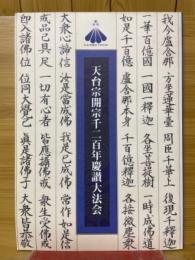 我今盧舎那 方坐蓮華臺 周匝千華上 復現千釋迦
一華百億國 一國一釋迦 各坐菩提樹 一時成佛道
如是千百億 盧舎那本身 千百億釋迦 各接微塵衆
天台宗開宗千二百年慶讃大法会
大衆心諦信 汝是當成佛 我是已成佛 常作如是信
戒品已具足 一切有心者 皆應攝佛戒 衆生受佛戒
即入諸佛位 位同大覺已 真是諸佛子 大衆皆恭敬